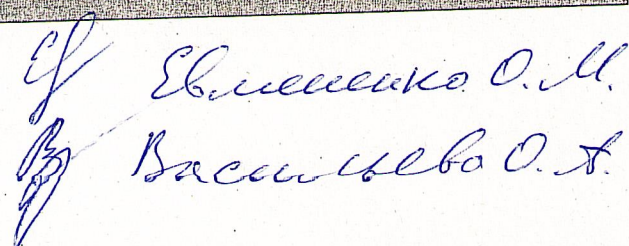 Евмененко О.М.
Васильева О.А.